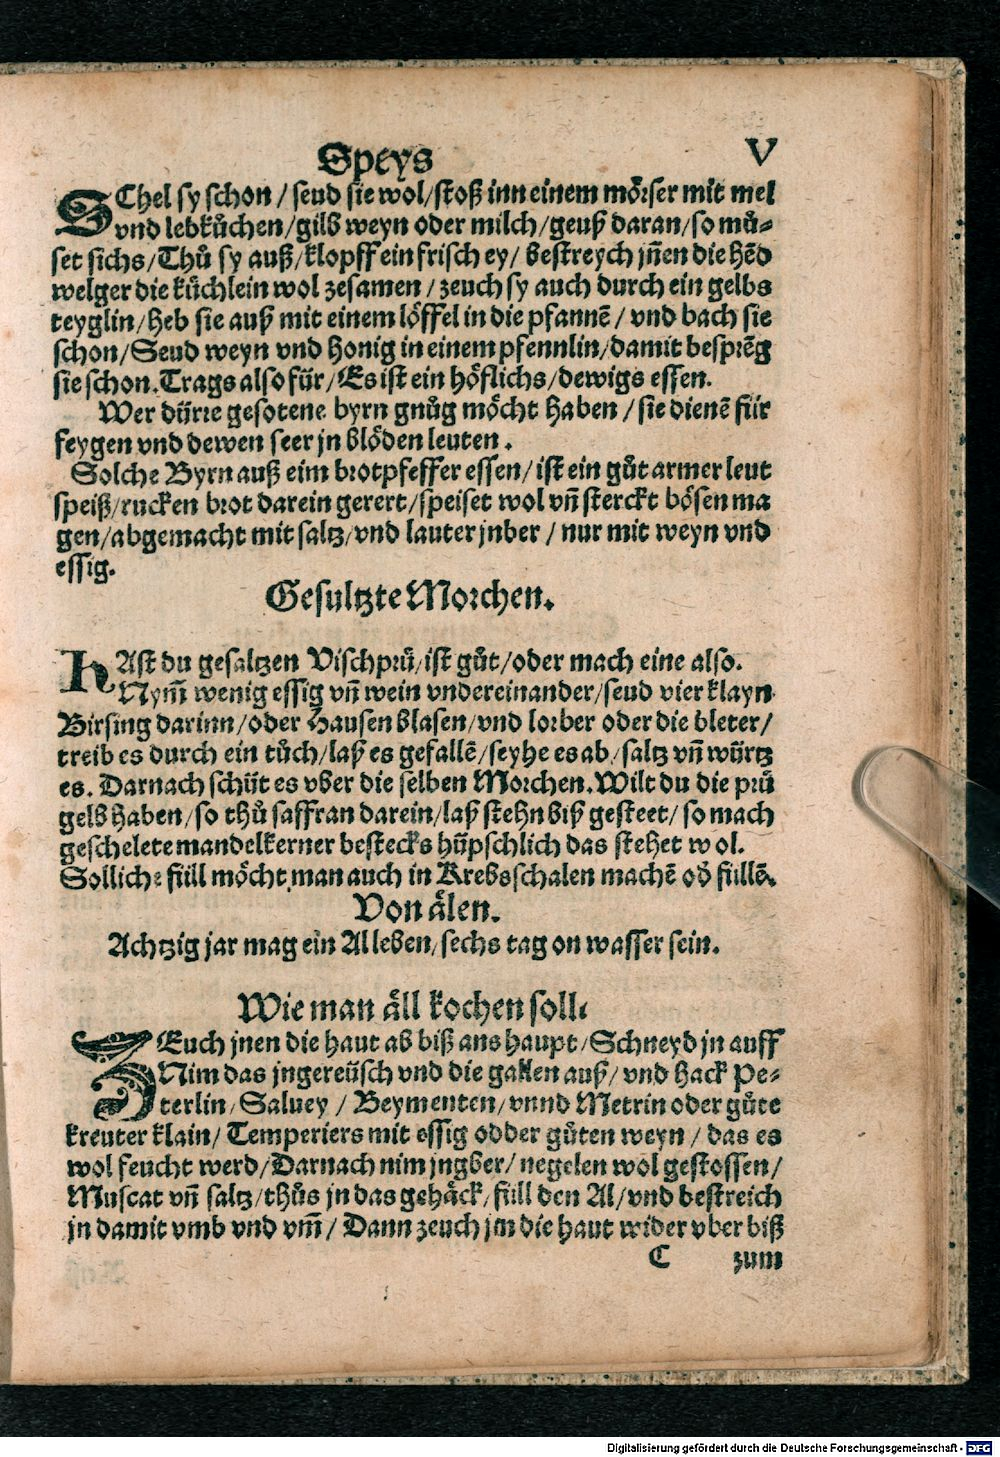 Speys V
SChel sy schon / seud sie wol/stoß inn einem mörser mit mel
vnd lebkůchen/gilb weyn oder milch/geuß daran/so mů-
set sichs/Thů sy auß/klopff ein frisch ey/ bestreych jñen die hēd
welger die kůchlein wol zesamen / zeuch sy auch durch ein gelbs
teyglin/heb sie auß mit einem löffel in die pfannē / vnd bach sie
schon/Seud weyn vnd honig in einem pfennlin/damit besprēg
sie schon. Trags also für/Es ist ein höflichs/dewigs essen.
Wer dürre gesotene byrn gnůg möcht haben / sie dienē für
feygen vnd dewen seer jn blöden leuten .
Solche Byrn auß eim brotpfeffer essen/ ist ein gůt armer leut
speiß/rucken brot darein gerert/speiset wol vñ sterckt bösen ma
gen/abgemacht mit saltz/vnd lauter jnber / nur mit weyn vnd
essig.
Gesultzte Morchen.
HAst du gesaltzen Vischprü/ist gůt/oder mach eine also.
Nym̄ wenig essig vñ wein vndereinander/seud vier klayn
Birsing darinn/oder Hausenblasen/vnd lorber oder die bleter/
treib es durch ein tůch/laß es gefallē/seyhe es ab/saltz vñ würtz
es. Darnach schüt es vber die selben Morchen. Wilt du die prü
gelb haben/so thů saffran darein/laß stehn biß gesteet/ so mach
geschelete mandelkerner bestecks hüpschlich das stehet wol.
Solliche füll möcht man auch in Krebsschalen machē od̄ füllē.
Von älen.
Achtzig jar mag ein Al leben/sechs tag on wasser sein.
Wie man äll kochen soll.
ZEuch jnen die haut ab biß ans haupt/Schneyd jn auff
Nim das jngereüsch vnd die gallen auß/ vnd hack Pe-
terlin/Saluey / Beymenten/vnnd Metrin oder gůte
kreuter klain/ Temperiers mit essig odder gůten weyn / das es
wol feucht werd/Darnach nim jngber/negelen wol gestossen/
Muscat vñ saltz/thůs jn das gehäck/füll den Al/vnd bestreich
jn damit vmb vnd vm̄ / Dann zeuch jm die haut wider vber biß
C zum
Digitalisierung gefördert durch die Deutsche Forschungsgemeinschaft - DFG